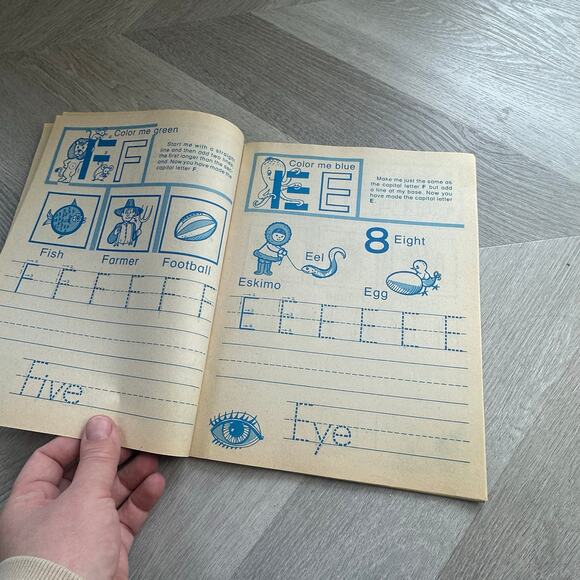 Color me green
F F
Start me with a straight
line and then add two lines,
the first longer than the sec-
ond. Now you have made the
capital letter F.
Fish
Farmer
Football
F F F F F F
Five
Color me blue
E E
Make me just the same as
the capital letter F but add
a line at my base. Now you
have made the capital letter
E.
8 Eight
Eskimo
Eel
Egg
E E E E E E
Eye